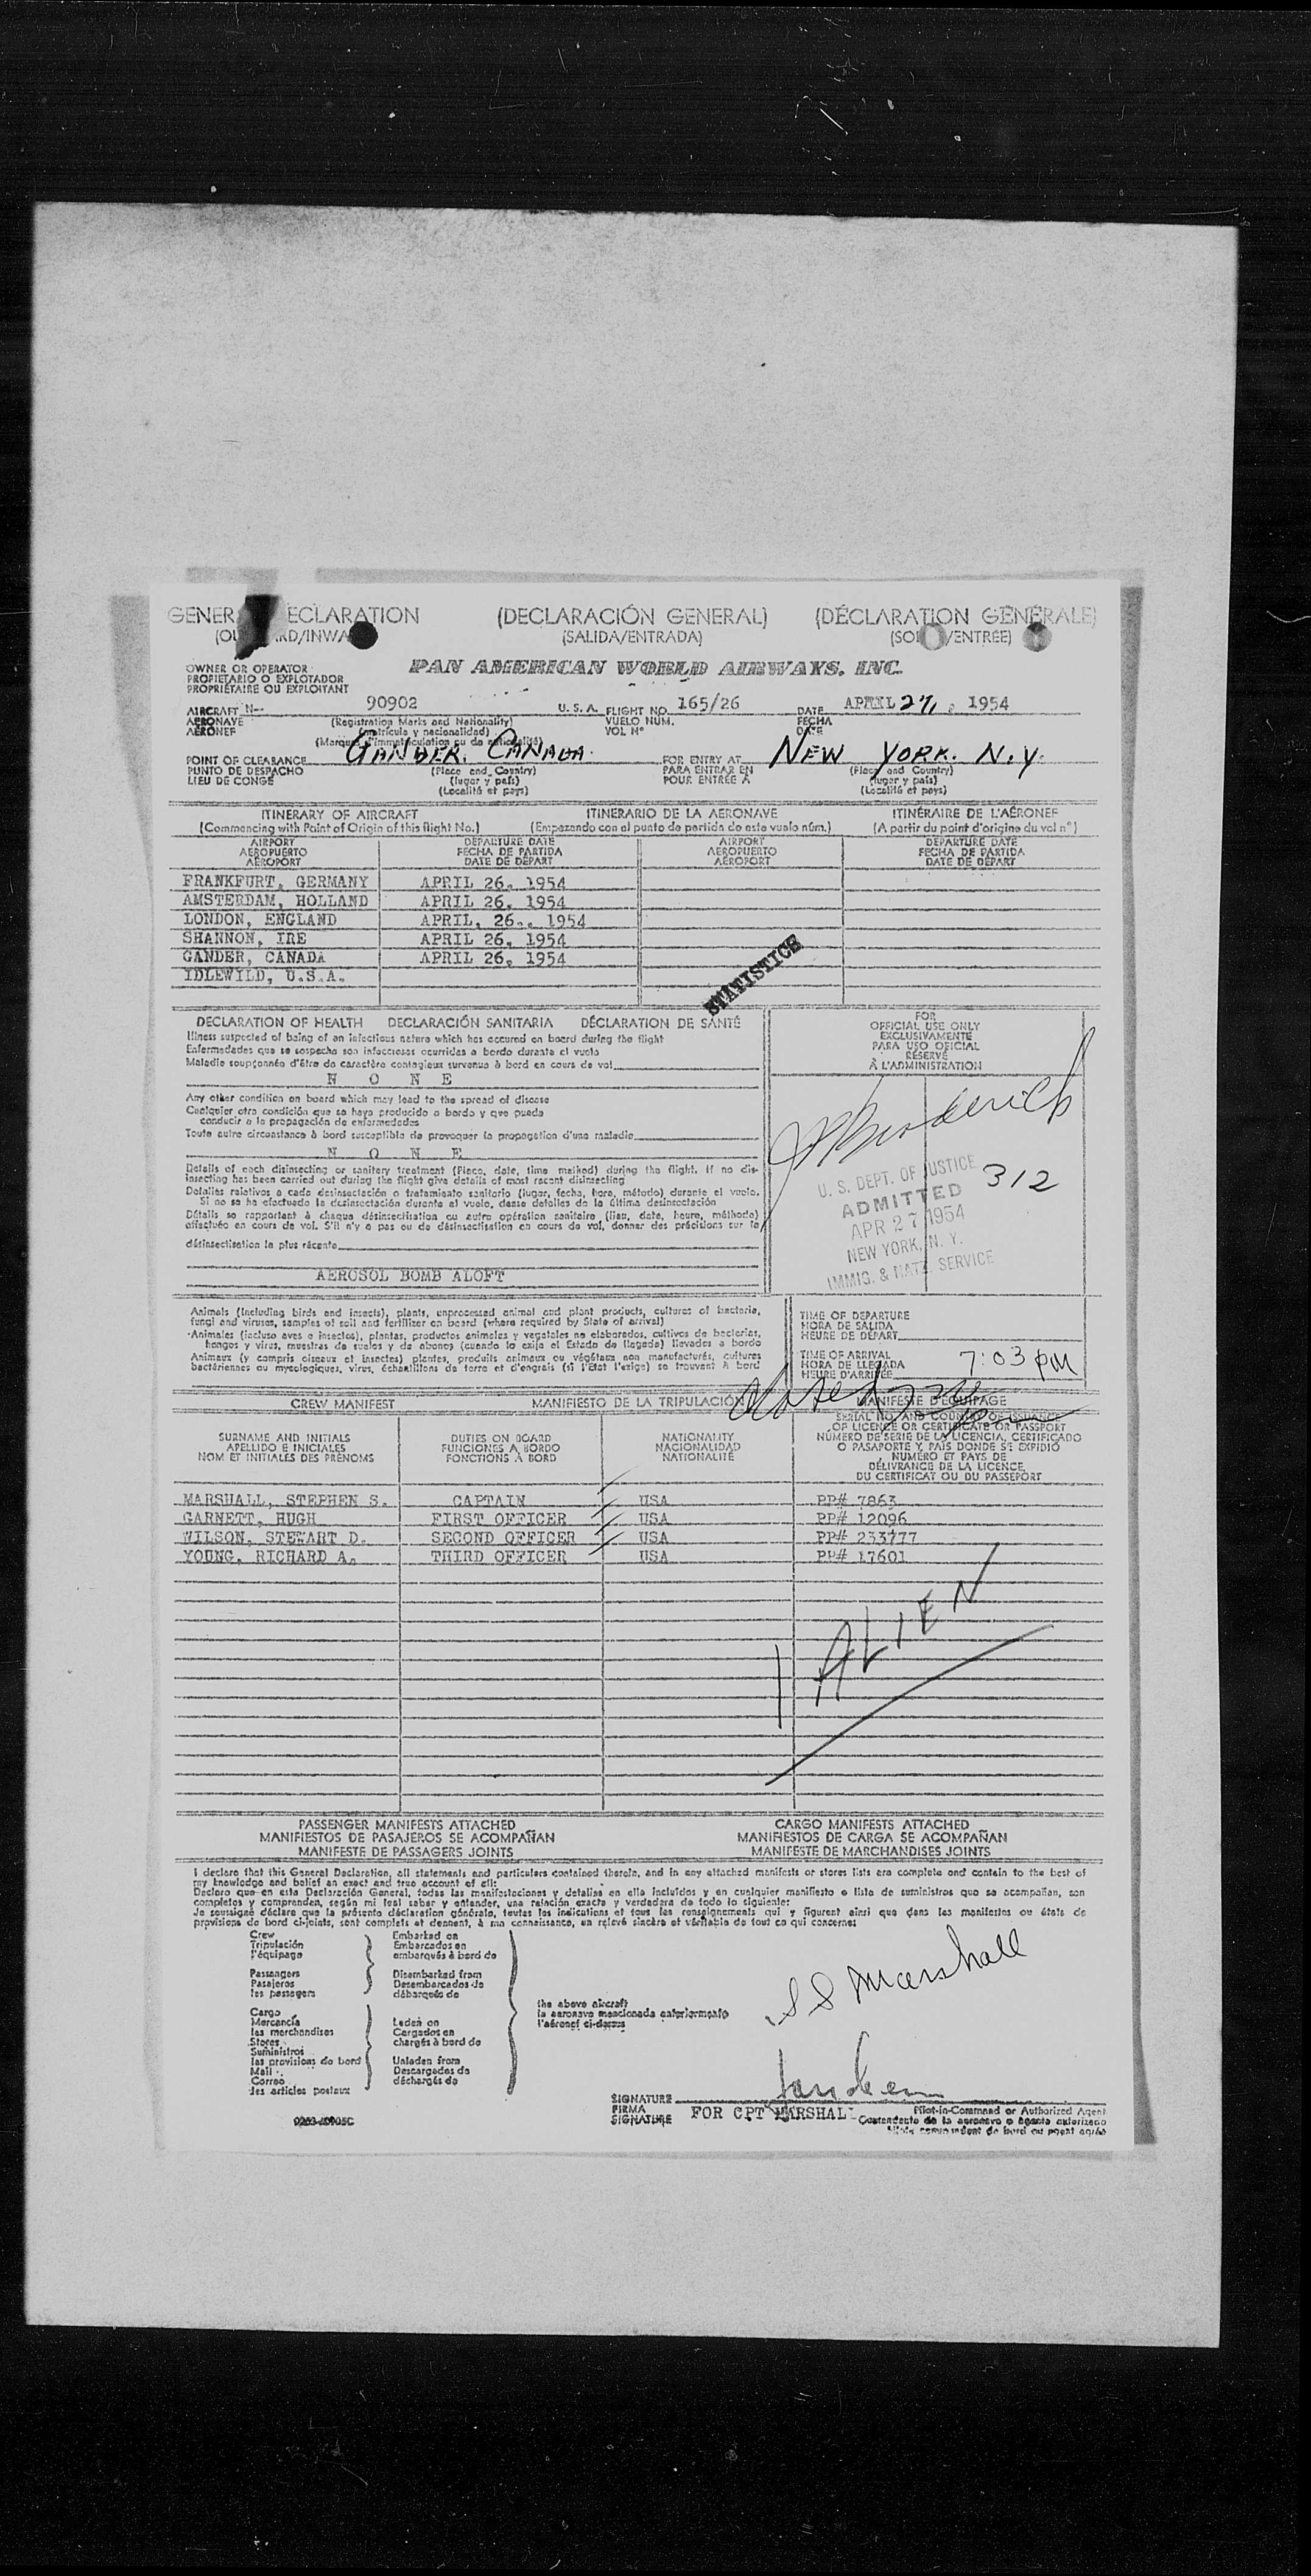 GENER ECLARATION (DECLARACIÓN GENERAL) (DÉCLARATION GÉNÉRALE)
(OU RD/INWA (SALIDA/ENTRADA) (SO /ENTRÉE)
OWNER OR OPERATOR PAN AMERICAN WORLD AIRWAYS, INC.
PROPIETARIO O EXPLOTADOR
PROPRIÉTAIRE OU EXPLOITANT
AIRCRAFT N- 90902 U.S.A. FLIGHT NO. 165/26 DATE APRIL 27, 1954
AERONAVE (Registration Marks and Nationality) VUELO NUM. FECHA
AÉRONEF (matrícula y nacionalidad) VOL Nº DATE
(Marques d'immatriculation ou de nationalité)
POINT OF CLEARANCE GANDER. CANADA. FOR ENTRY AT NEW YORK. N.Y.
PUNTO DE DESPACHO (Place and Country) PARA ENTRAR EN (Place and Country)
LIEU DE CONGÉ (lugar y país) POUR ENTRÉE À (lugar y país)
(Localité et pays) (Localité et pays)
ITINERARY OF AIRCRAFT ITINERARIO DE LA AERONAVE ITINÉRAIRE DE L'AÉRONEF
(Commencing with Point of Origin of this flight No.) (Empezando con el punto de partida de este vuelo núm.) (A partir du point d'origine du vol nº)
AIRPORT DEPARTURE DATE AIRPORT DEPARTURE DATE
AEROPUERTO FECHA DE PARTIDA AEROPUERTO FECHA DE PARTIDA
AÉROPORT DATE DE DÉPART AÉROPORT DATE DE DÉPART
FRANKFURT, GERMANY APRIL 26, 1954
AMSTERDAM, HOLLAND APRIL 26, 1954
LONDON, ENGLAND APRIL, 26., 1954
SHANNON, IRE APRIL 26, 1954
GANDER, CANADA APRIL 26, 1954
IDLEWILD, U.S.A.
STATISTICS
DECLARATION OF HEALTH DECLARACIÓN SANITARIA DÉCLARATION DE SANTÉ
Illness suspected of being of an infectious nature which has occured on board during the flight
Enfermedades que se sospecha son infecciosas ocurridas a bordo durante el vuelo
Maladie soupçonnée d'être de caractère contagieux survenue à bord en cours de vol
N O N E
Any other condition on board which may lead to the spread of disease
Cualquier otra condición que se haya producido a bordo y que pueda
conducir a la propagación de enfermedades
Toute autre circonstance à bord susceptible de provoquer la propagation d'une maladie
N O N E
Details of each disinsecting or sanitary treatment (Place, date, time method) during the flight. If no dis-
insecting has been carried out during the flight give details of most recent disinsecting
Detalles relativos a cada desinsectación o tratamiento sanitario (lugar, fecha, hora, método) durante el vuelo.
Si no se ha efectuado la desinsectación durante el vuelo, dense detalles de la última desinsectación
Détails se rapportant à chaque désinsectisation ou autre opération sanitaire (lieu, date, heure, méthode)
effectuée en cours de vol. S'il n'y a pas eu de désinsectisation en cours de vol, donner des précisions sur la
désinsectisation la plus récente
AEROSOL BOMB ALOFT
FOR
OFFICIAL USE ONLY
EXCLUSIVAMENTE
PARA USO OFICIAL
RÉSERVÉ
À L'ADMINISTRATION
Broderick
312
U. S. DEPT. OF JUSTICE
ADMITTED
APR 27 1954
NEW YORK, N. Y.
IMMIG. & NATZ. SERVICE
Animals (including birds and insects), plants, unprocessed animal and plant products, cultures of bacteria,
fungi and viruses, samples of soil and fertilizer on board (where required by State of arrival)
Animales (incluso aves e insectos), plantas, productos animales y vegetales no elaborados, cultivos de bacterias,
hongos y virus, muestras de suelos y de abonos (cuando lo exija el Estado de llegada) llevados a bordo
Animaux (y compris oiseaux et insectes) plantes, produits animaux ou végétaux non manufacturés, cultures
bactériennes ou mycologiques, virus, échantillons de terre et d'engrais (si l'Etat l'exige) se trouvant à bord
TIME OF DEPARTURE
HORA DE SALIDA
HEURE DE DÉPART
TIME OF ARRIVAL
HORA DE LLEGADA 7:03 PM
HEURE D'ARRIVÉE
CREW MANIFEST MANIFIESTO DE LA TRIPULACIÓN MANIFESTE D'ÉQUIPAGE
SURNAME AND INITIALS DUTIES ON BOARD NATIONALITY SERIAL NO. AND COUNTRY OF ISSUANCE
APELLIDO E INICIALES FUNCIONES A BORDO NACIONALIDAD OF LICENCE OR CERTIFICATE OR PASSPORT
NOM ET INITIALES DES PRÉNOMS FONCTIONS À BORD NATIONALITÉ NÚMERO DE SERIE DE LA LICENCIA, CERTIFICADO
O PASAPORTE Y PAÍS DONDE SE EXPIDIÓ
NUMÉRO ET PAYS DE
DÉLIVRANCE DE LA LICENCE,
DU CERTIFICAT OU DU PASSEPORT
MARSHALL, STEPHEN S. CAPTAIN USA PP# 7863
GARNETT, HUGH FIRST OFFICER USA PP# 12096
WILSON, STEWART D. SECOND OFFICER USA PP# 233777
YOUNG, RICHARD A. THIRD OFFICER USA PP# 17601
1 ALIEN
PASSENGER MANIFESTS ATTACHED CARGO MANIFESTS ATTACHED
MANIFIESTOS DE PASAJEROS SE ACOMPAÑAN MANIFIESTOS DE CARGA SE ACOMPAÑAN
MANIFESTE DE PASSAGERS JOINTS MANIFESTE DE MARCHANDISES JOINTS
I declare that this General Declaration, all statements and particulars contained therein, and in any attached manifests or stores lists are complete and contain to the best of
my knowledge and belief an exact and true account of all:
Declaro que en esta Declaración General, todas las manifestaciones y detalles en ella incluidos y en cualquier manifiesto o lista de suministros que se acompañan, son
completos y comprenden, según mi leal saber y entender, una relación exacta y verdadera de todo lo siguiente:
Je soussigné déclare que la présente déclaration générale, toutes les indications et tous les renseignements qui y figurent ainsi que dans les manifestes ou états de
provisions de bord ci-joints, sont complets et donnent, à ma connaissance, un relevé sincère et véritable de tout ce qui concerne:
Crew Embarked on
Tripulación Embarcados en
l'équipage embarqués à bord de
Passengers Disembarked from
Pasajeros Desembarcados de
les passagers débarqués de
Cargo
Mercancía Laden on
les marchandises Cargados en
Stores chargés à bord de
Suministros
les provisions de bord Unladen from
Mail Descargados de
Correo déchargés de
les articles postaux
the above aircraft
la aeronave mencionada anteriormente
l'aéronef ci-dessus
S S Marshall
SIGNATURE
FIRMA FOR CPT MARSHALL Pilot-in-Command or Authorized Agent
SIGNATURE Comandante de la aeronave o agente autorizado
Pilote commandant de bord ou agent agréé